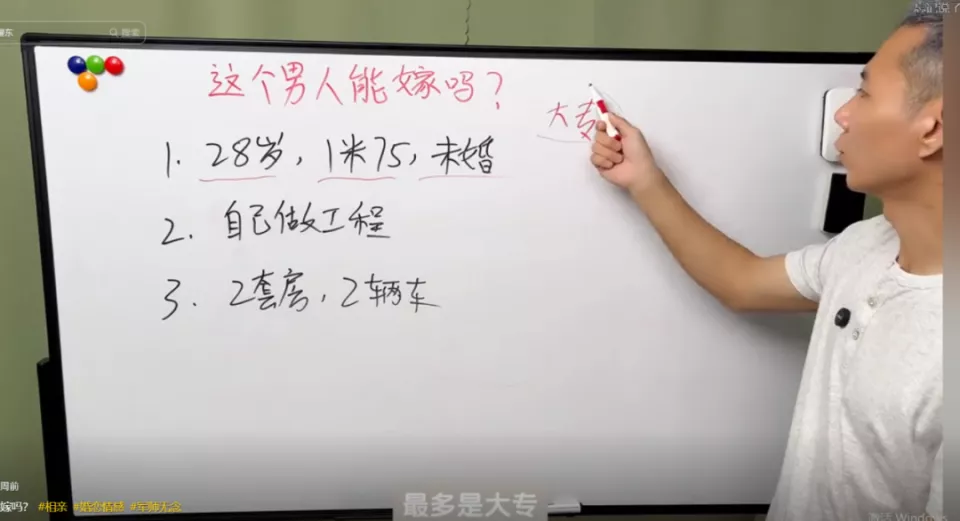 搜索
这个男人能嫁吗?
大专
1. 28岁, 1米75, 未婚
2. 自己做工程
3. 2套房, 2辆车
周前
嫁吗? #相亲 #婚恋情感 #军师无念
最多是大专
Windows